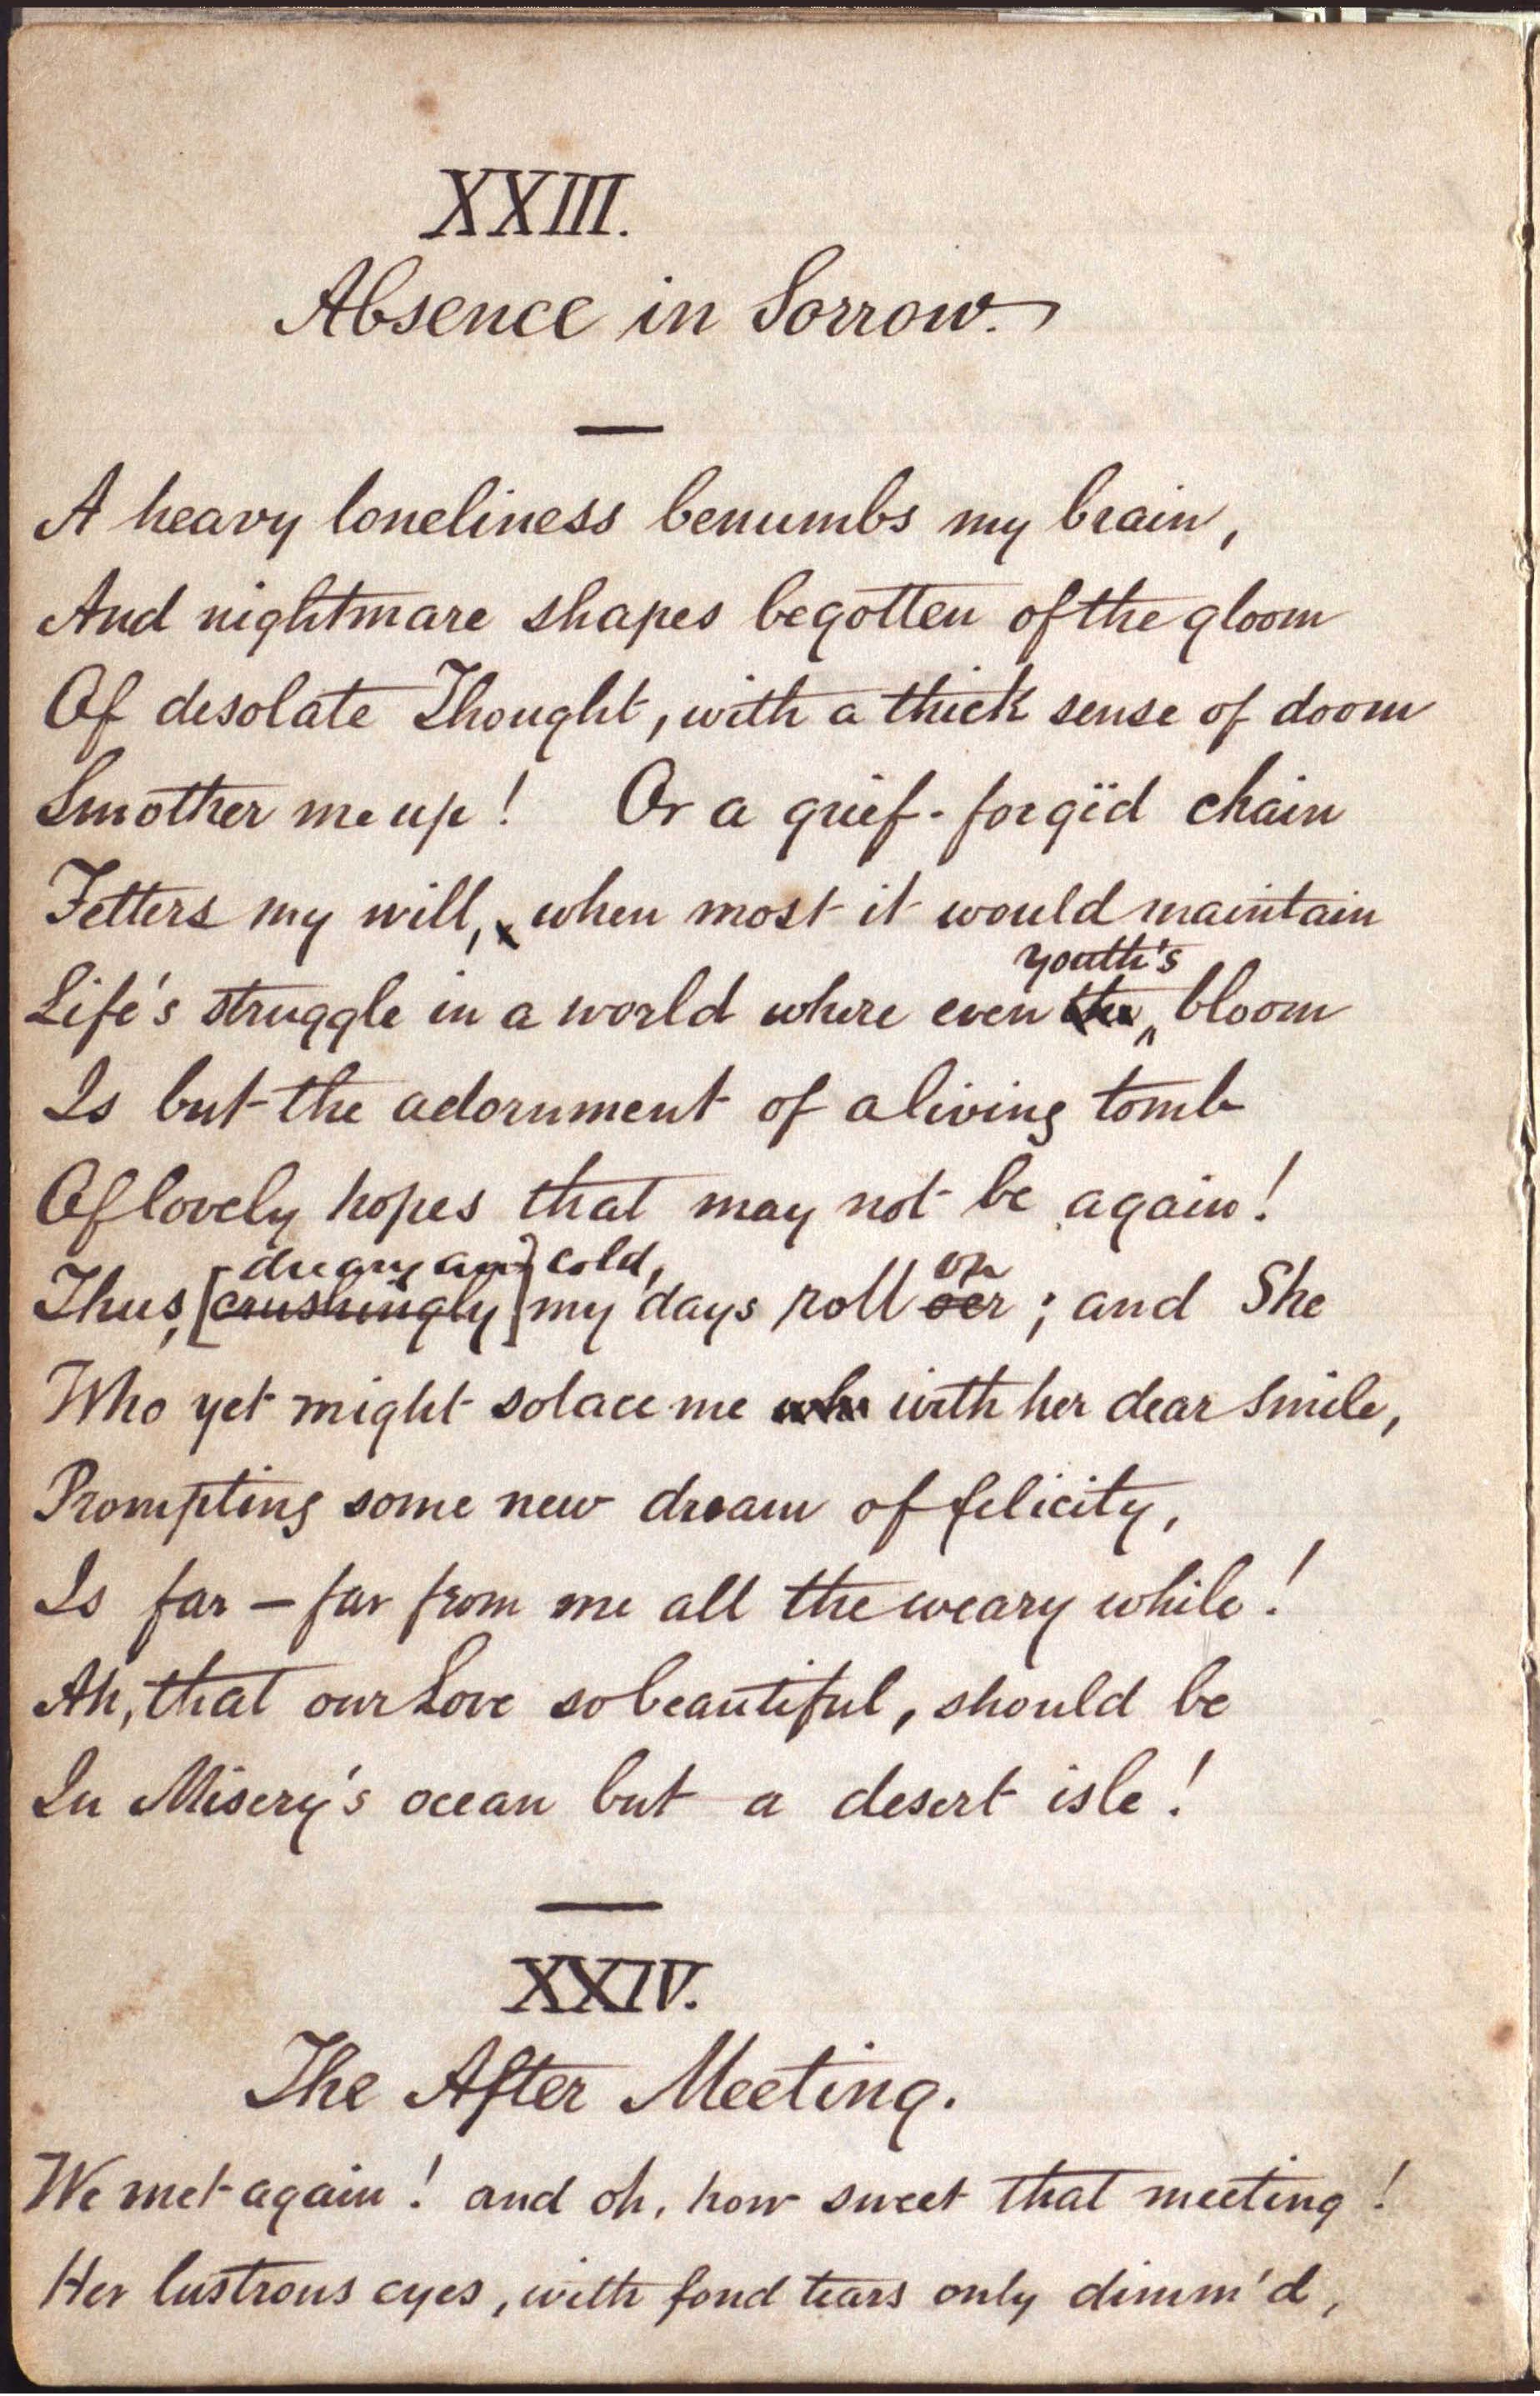 XXIII.
Absence in Sorrow.
A heavy loneliness benumbs my brain,
And nightmare shapes begotten of the gloom
Of desolate Thought, with a thick sense of doom
Smother me up! Or a grief-forgïd chain
Fetters my will, when most it would maintain
youth's
Life's struggle in a world where even the bloom
Is but the adornment of a living tomb
Of lovely hopes that may not be again!
dreary and cold, on
Thus, [crushingly] my days roll oer; and She
Who yet might solace me with her dear smile,
Prompting some new dream of felicity,
Is far — far from me all the weary while!
Ah, that our Love so beautiful, should be
In Misery's ocean but a desert isle!
XXIV.
The After Meeting.
We met again! and oh, how sweet that meeting!
Her lustrous eyes, with fond tears only dimm'd,